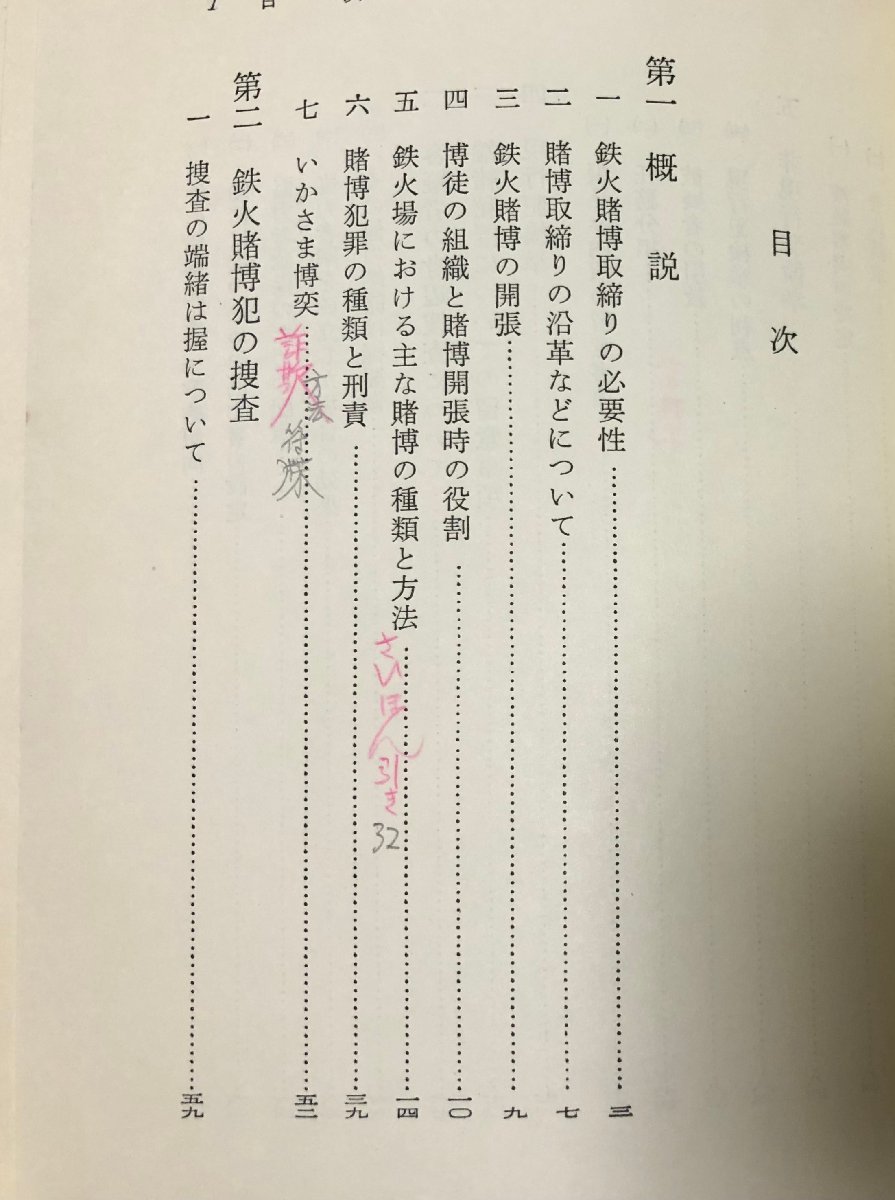 目次
第一 概説
一 鉄火賭博取締りの必要性……三
二 賭博取締りの沿革などについて……七
三 鉄火賭博の開張……九
四 博徒の組織と賭博開張時の役割……一〇
五 鉄火場における主な賭博の種類と方法……一四
さいほん引き 32
六 賭博犯罪の種類と刑責……三九
七 いかさま博奕……五二
詐欺 方法
第二 鉄火賭博犯の捜査
一 捜査の端緒は握について……五九